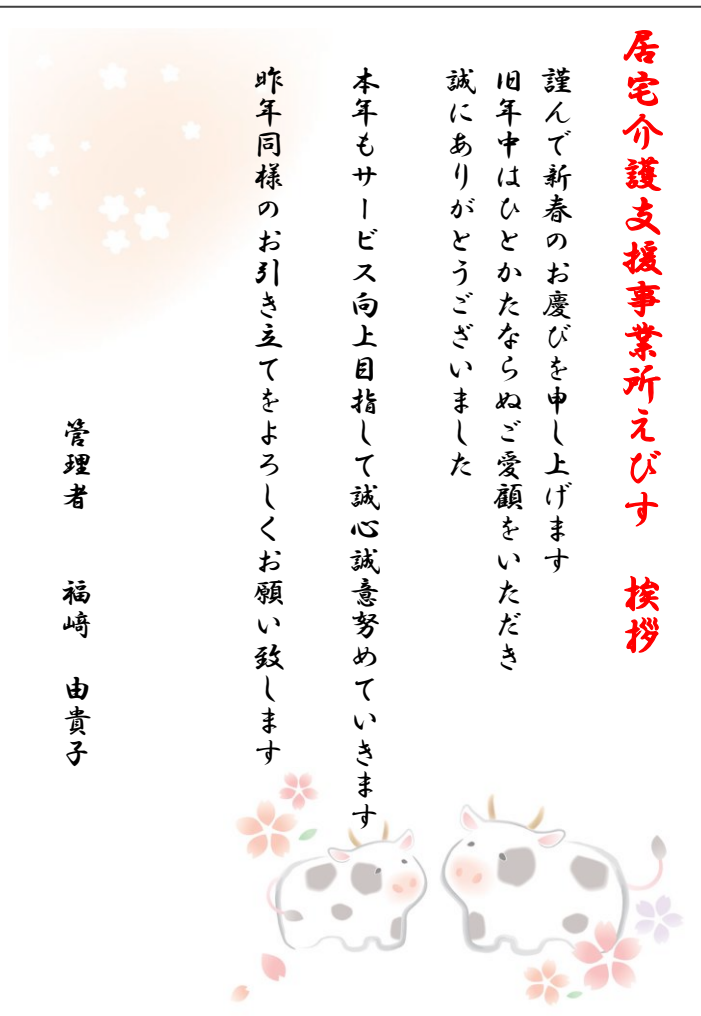 居宅介護支援事業所えびす　挨拶
謹んで新春のお慶びを申し上げます
旧年中はひとかたならぬご愛顧をいただき
誠にありがとうございました
本年もサービス向上目指して誠心誠意努めていきます
昨年同様のお引き立てをよろしくお願い致します
管理者　　福﨑　由貴子